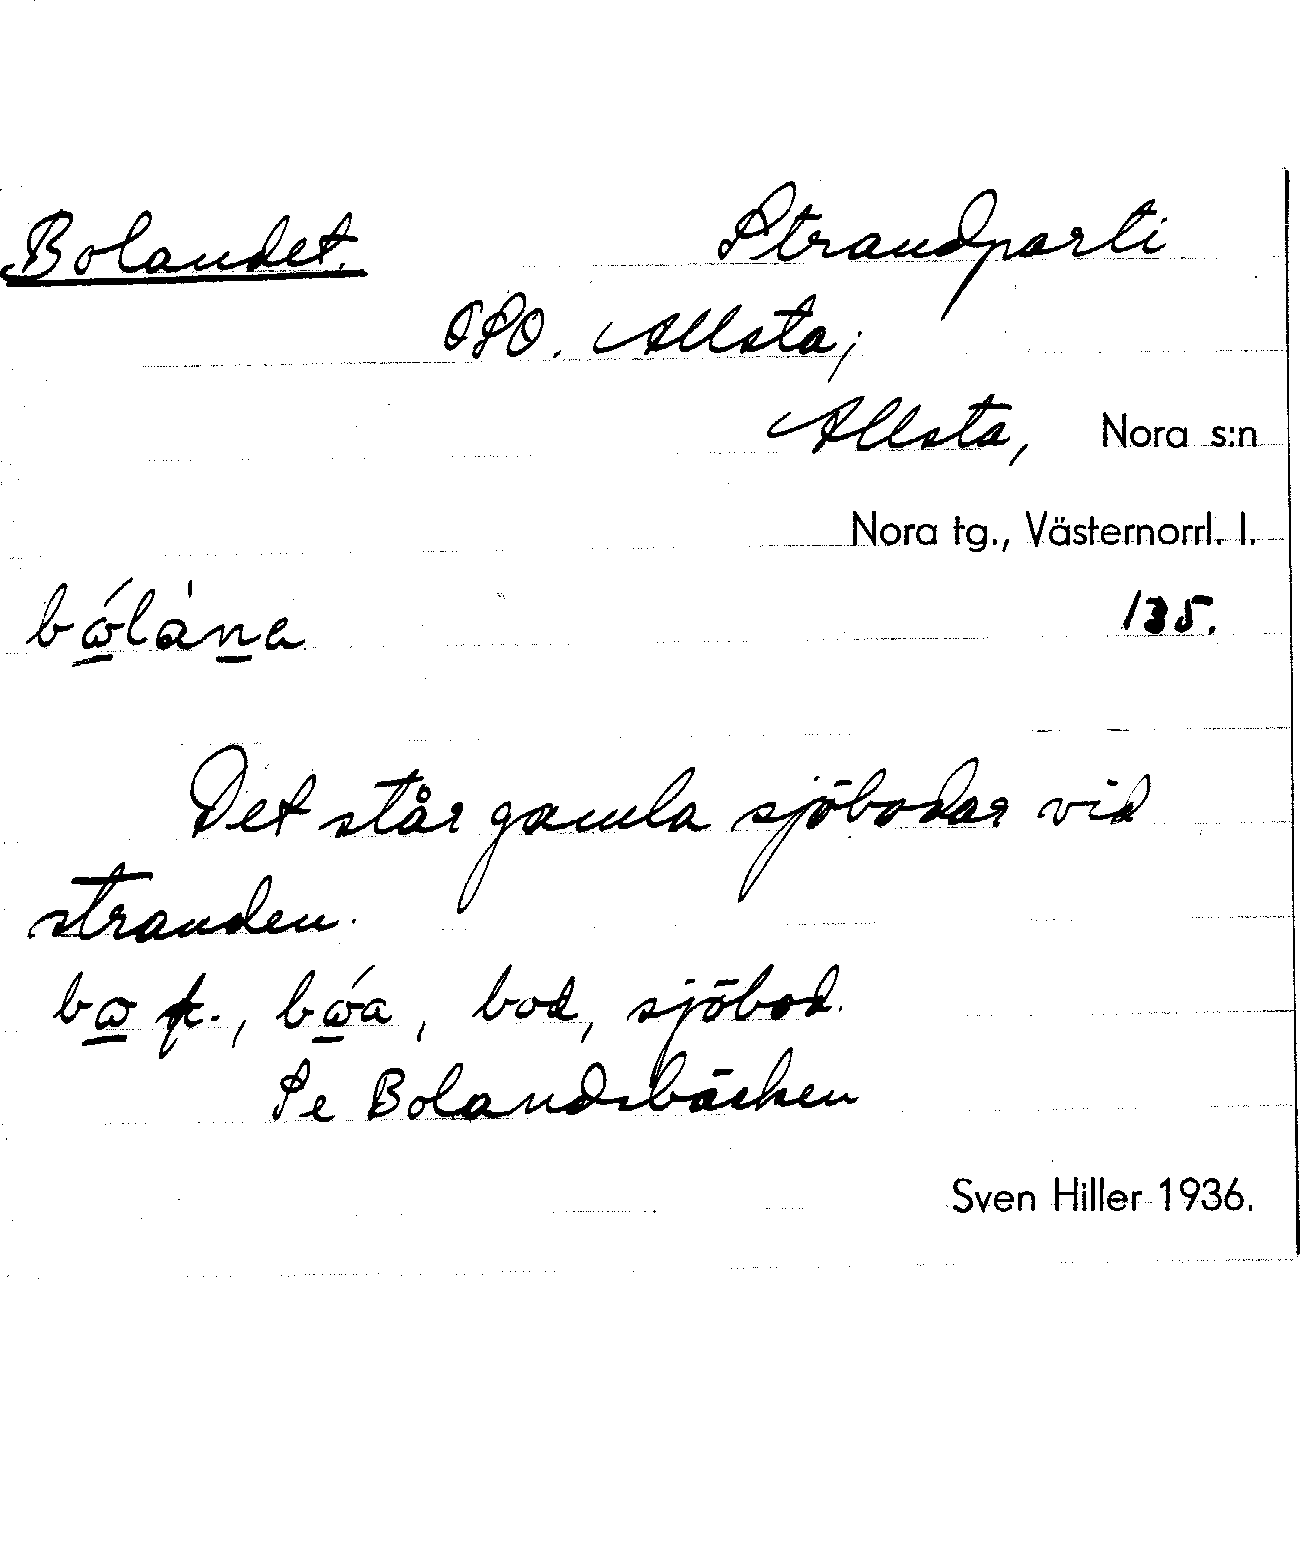 Bolandet. Strandparti
OSO. Allsta;
Allsta, Nora s:n
Nora tg., Västernorrl. l.
bɷ́làna 135.
Det står gamla sjöbodar vid
stranden.
bɷ f., bɷ́a, bod, sjöbod.
Se Bolandsbäcken
Sven Hiller 1936.